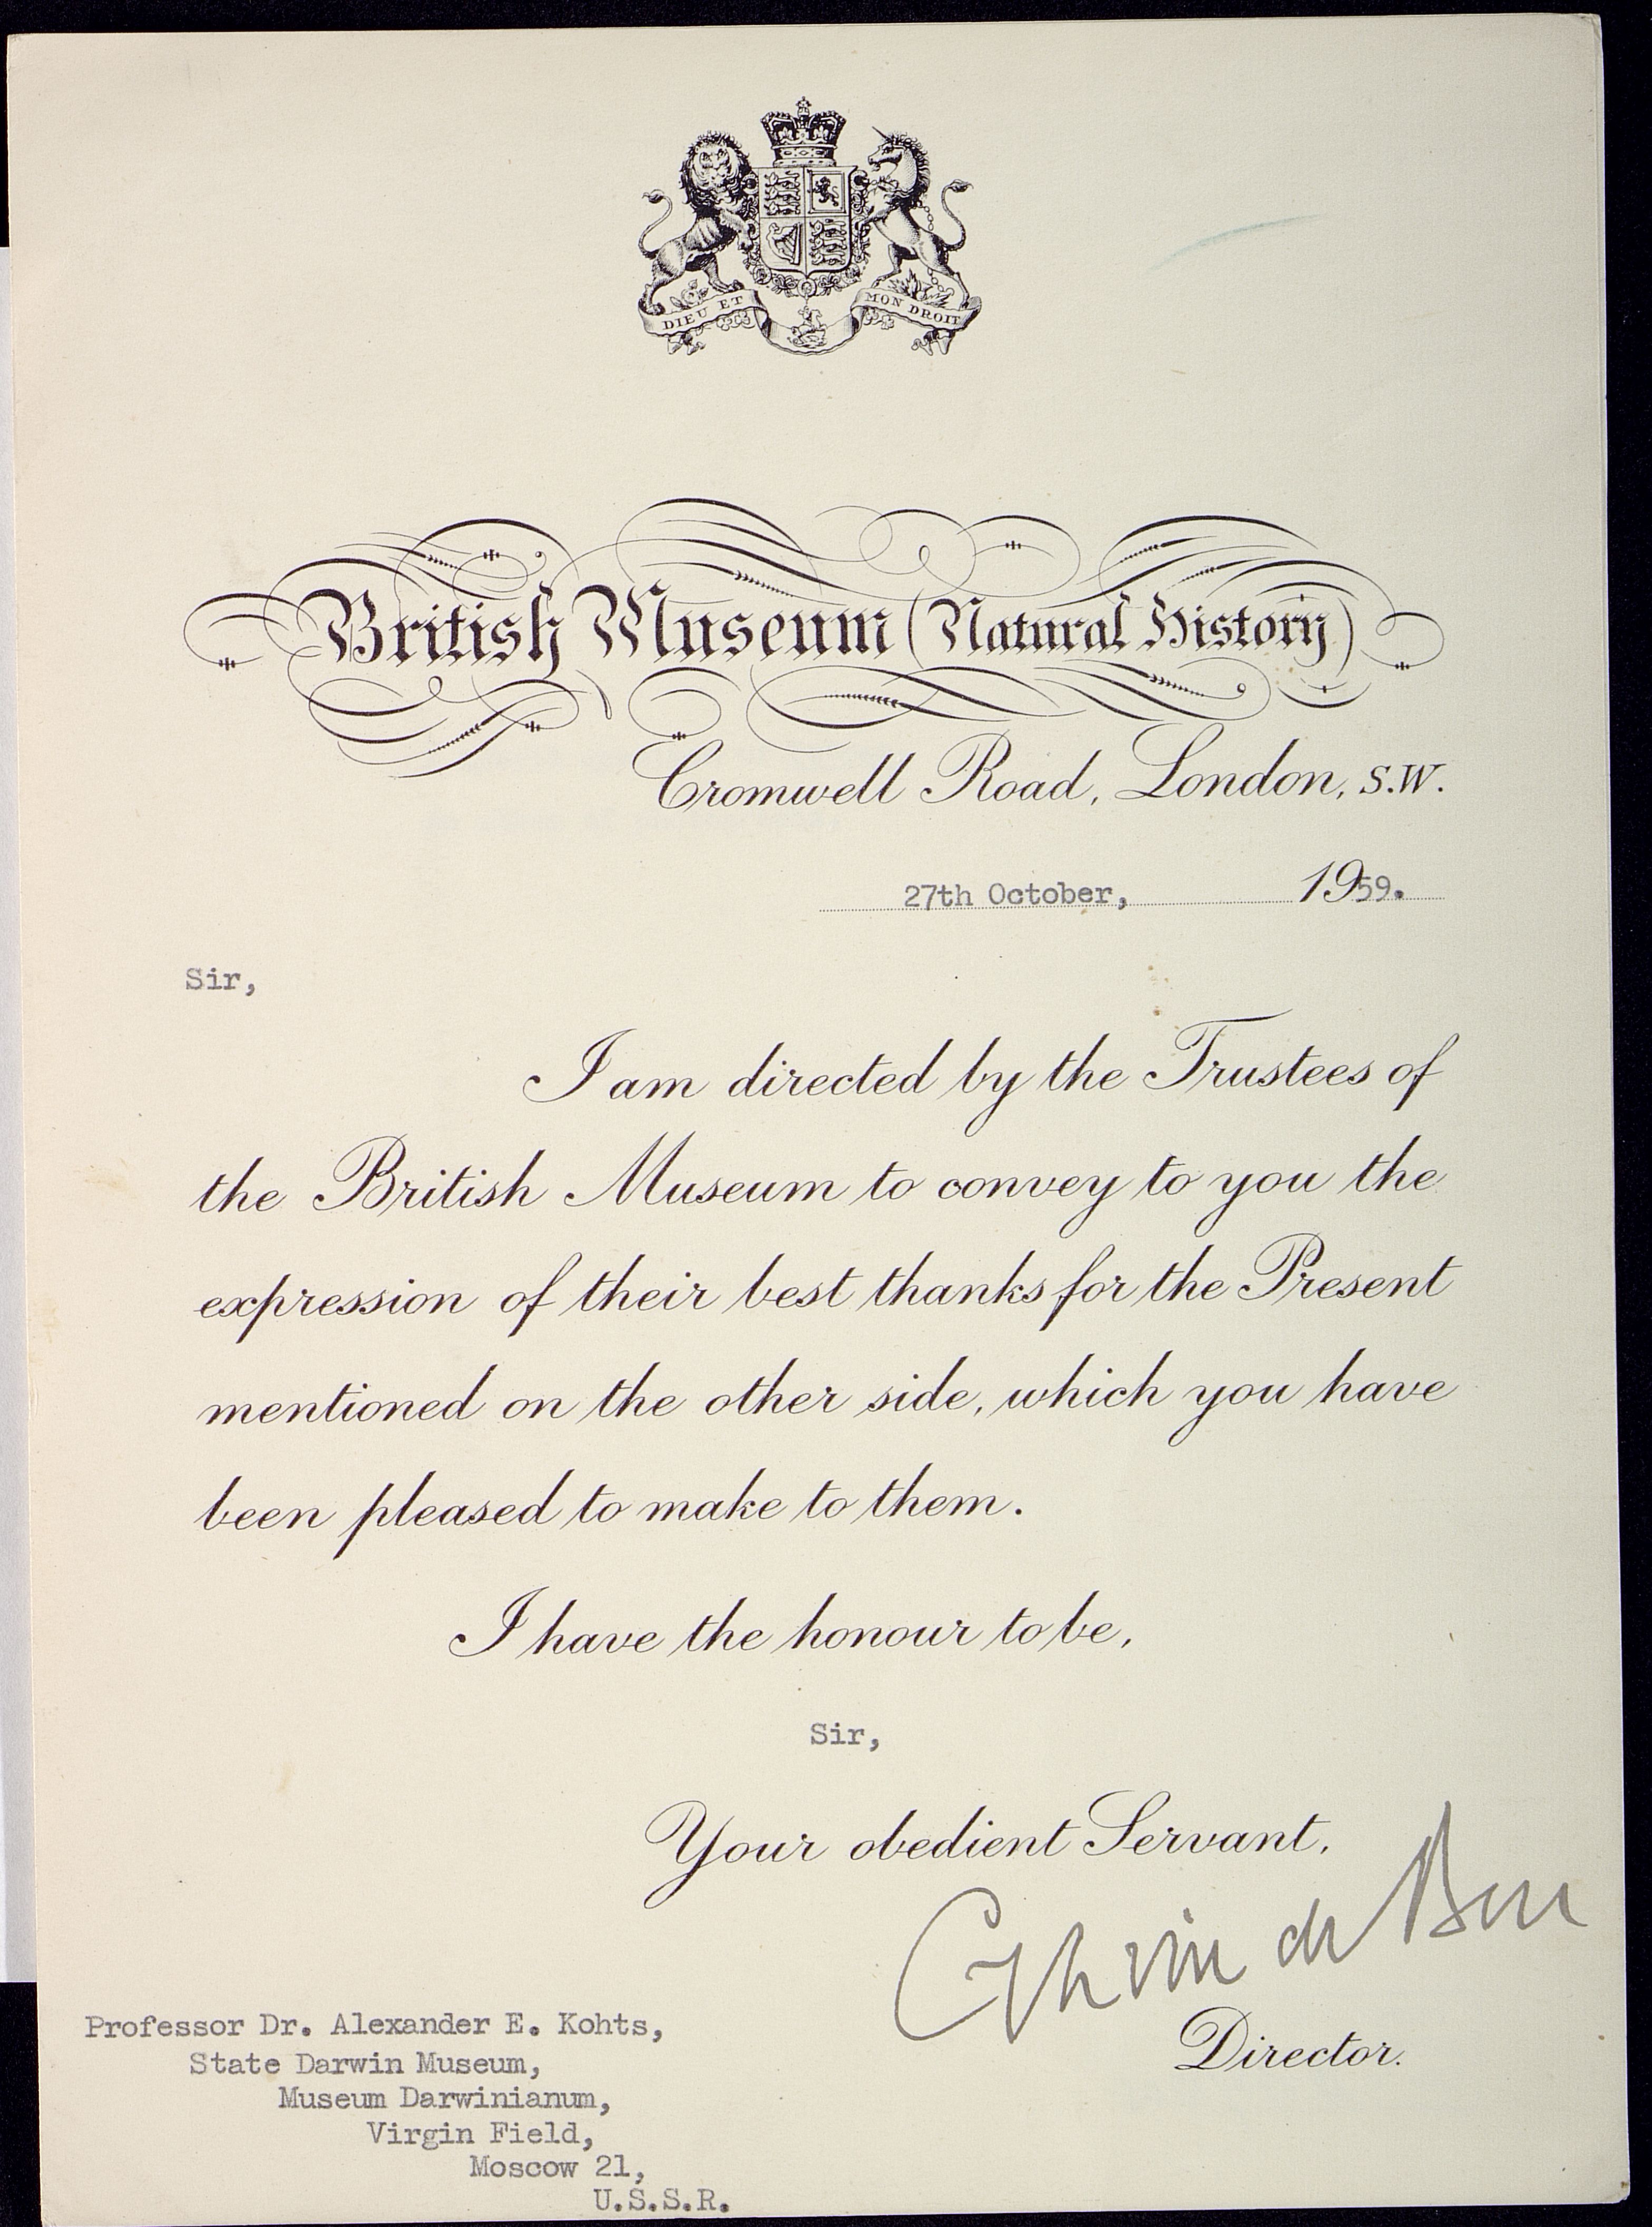 DIEU ET MON DROIT
British Museum (Natural History)
Cromwell Road, London, S.W.
27th October, 1959.
Sir,
I am directed by the Trustees of
the British Museum to convey to you the
expression of their best thanks for the Present
mentioned on the other side, which you have
been pleased to make to them.
I have the honour to be,
Sir,
Your obedient Servant,
Director.
Professor Dr. Alexander E. Kohts,
State Darwin Museum,
Museum Darwinianum,
Virgin Field,
Moscow 21,
U.S.S.R.